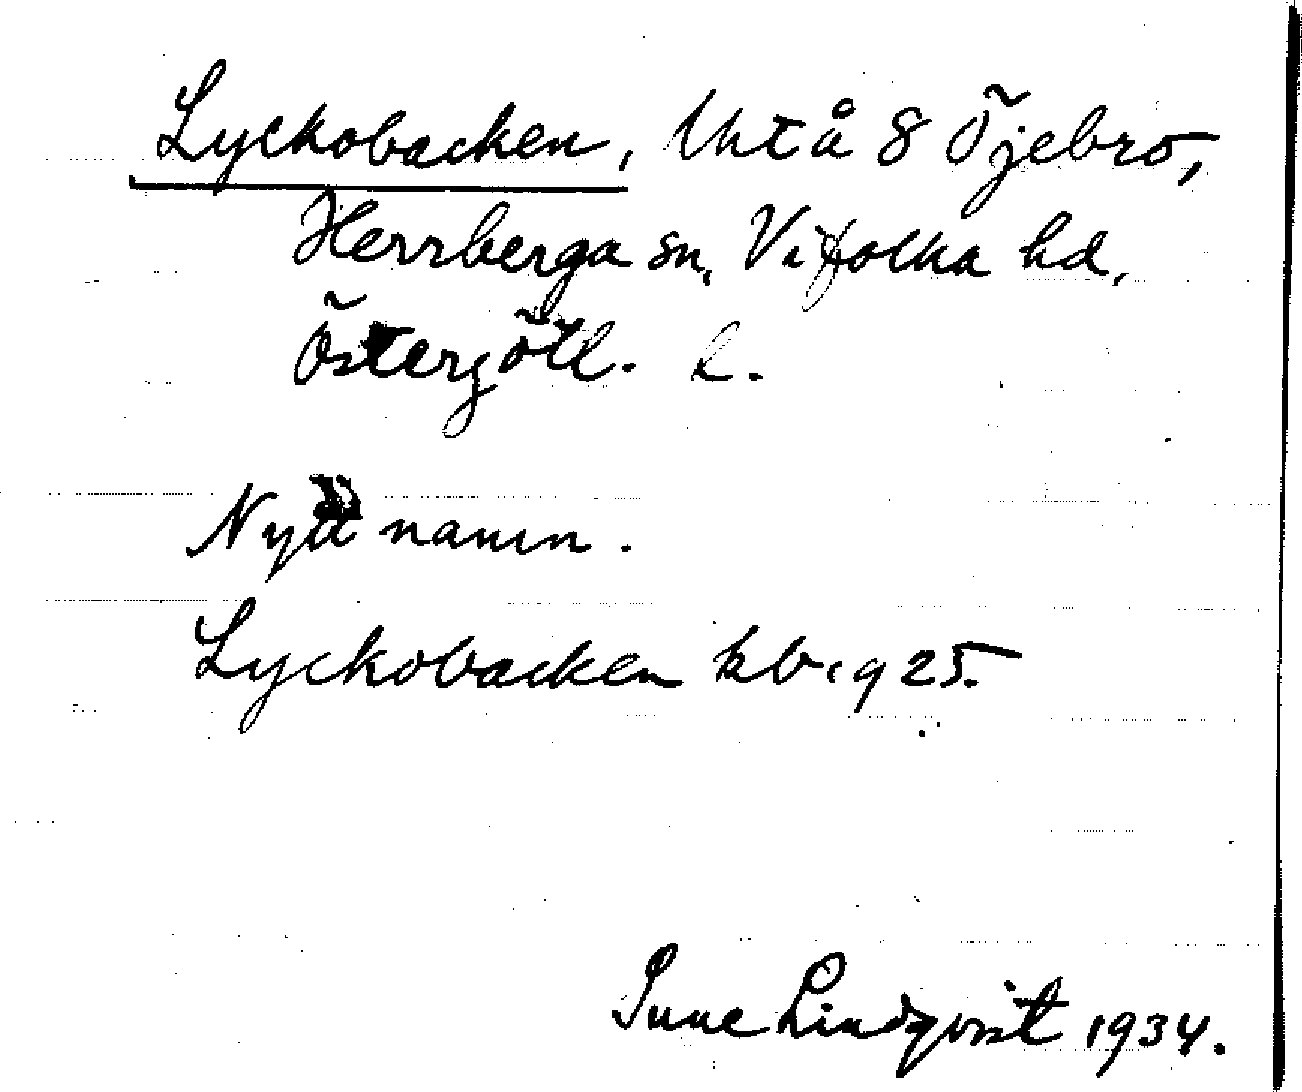 Lyckobacken, Untå 8 Öjebro,
Herrberga sn, Vifolka hd,
Östergötl. l.
Nytt namn.
Lyckobacken kb. 1925.
Sune Lindqvist 1934.